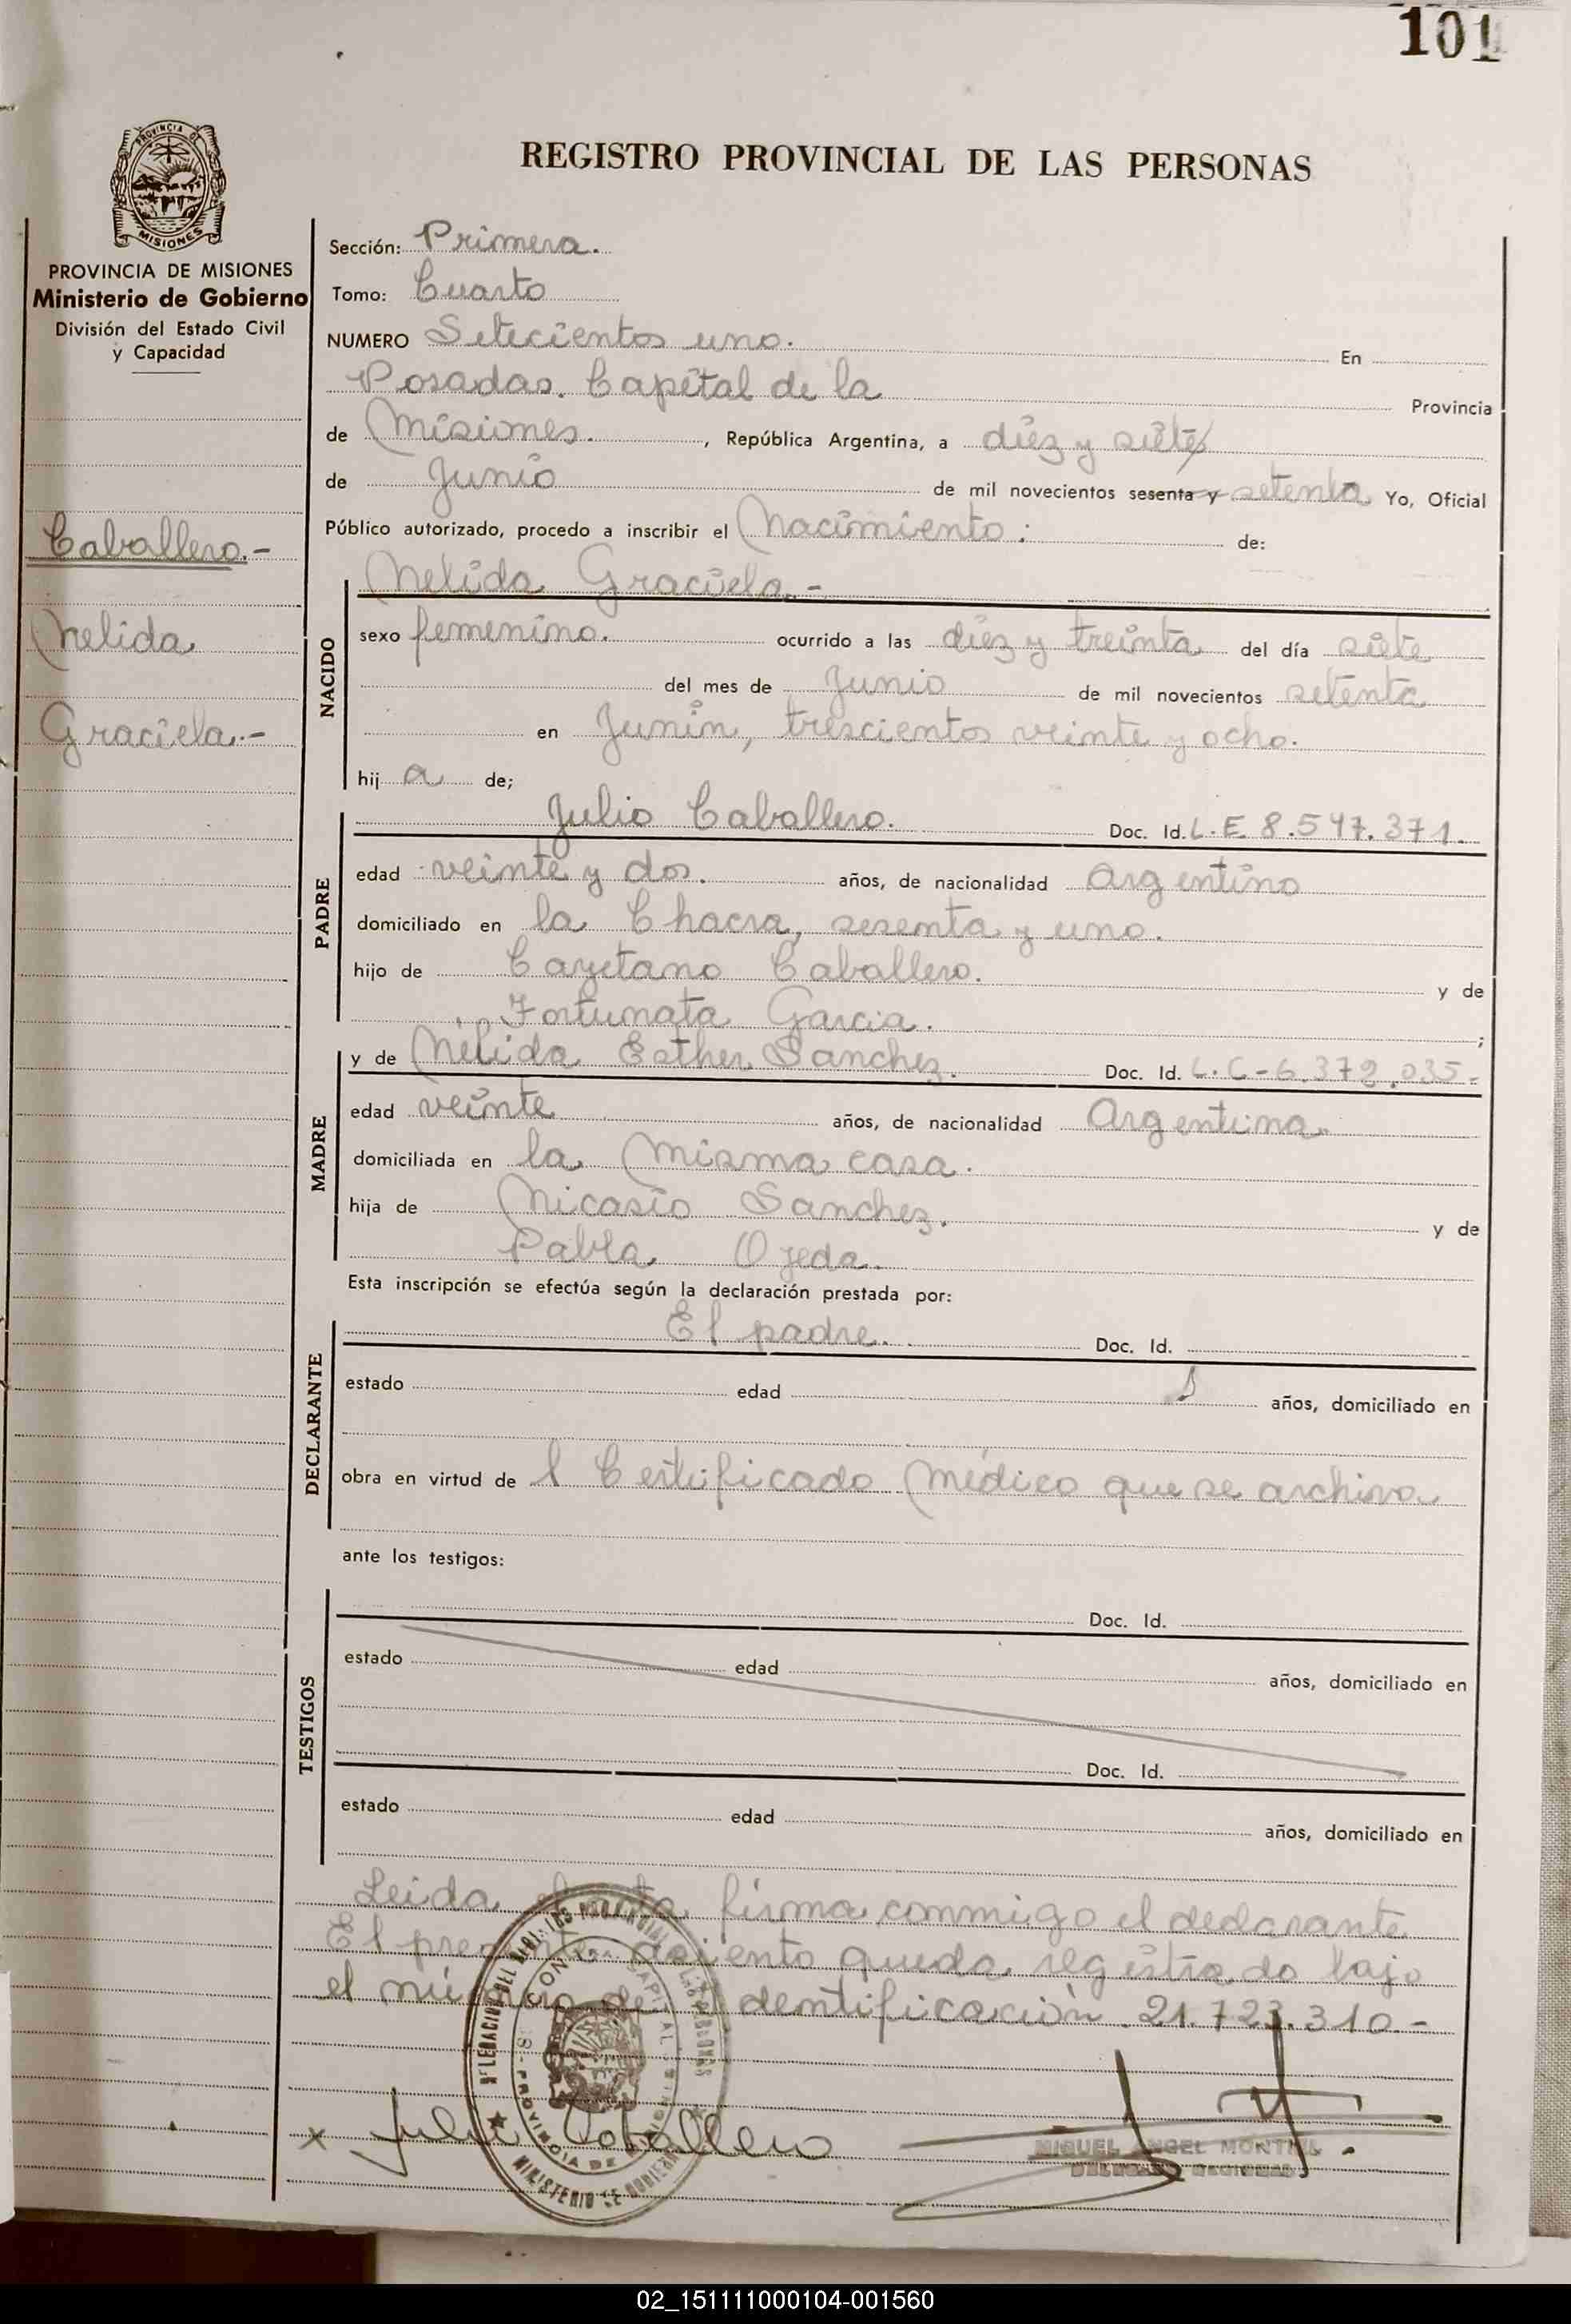 101
REGISTRO PROVINCIAL DE LAS PERSONAS
PROVINCIA DE MISIONES
PROVINCIA DE MISIONES
Ministerio de Gobierno
División del Estado Civil
y Capacidad
Caballero.-
Nelida
Graciela.-
Sección: Primera.
Tomo: Cuarto
NUMERO Setecientos uno. En
Posadas. Capital de la Provincia
de Misiones. , República Argentina, a diez y siete
de Junio de mil novecientos sesenta y setenta Yo, Oficial
Público autorizado, procedo a inscribir el Nacimiento: de:
Nelida Graciela.-
NACIDO
sexo femenino. ocurrido a las diez y treinta del día siete
del mes de Junio de mil novecientos setenta
en Junin, trescientos veinte y ocho.
hij a de;
PADRE
Julio Caballero. Doc. Id. L.E. 8.547.371.
edad veinte y dos. años, de nacionalidad Argentino
domiciliado en la Chacra, sesenta y uno.
hijo de Cayetano Caballero. y de
Fortunata Garcia. ;
MADRE
y de Nélida Esther Sanchez. Doc. Id. L.C-6.372.035-
edad veinte años, de nacionalidad Argentina
domiciliada en la misma casa.
hija de Nicasio Sanchez. y de
Pabla Ojeda.
Esta inscripción se efectúa según la declaración prestada por:
DECLARANTE
El padre. Doc. Id.
estado edad años, domiciliado en
obra en virtud de l Certificado Médico que se archiva
ante los testigos:
TESTIGOS
Doc. Id.
estado edad años, domiciliado en
Doc. Id.
estado edad años, domiciliado en
Leida el acta firma conmigo el declarante
El presente asiento queda registrado bajo
el número de identificación 21.723.310-
x Julio Caballero
MIGUEL ANGEL MONTIEL
DELEGADO REGIONAL
MINISTERIO DE GOBIERNO
PROVINCIA DE
CAPITAL
02_151111000104-001560